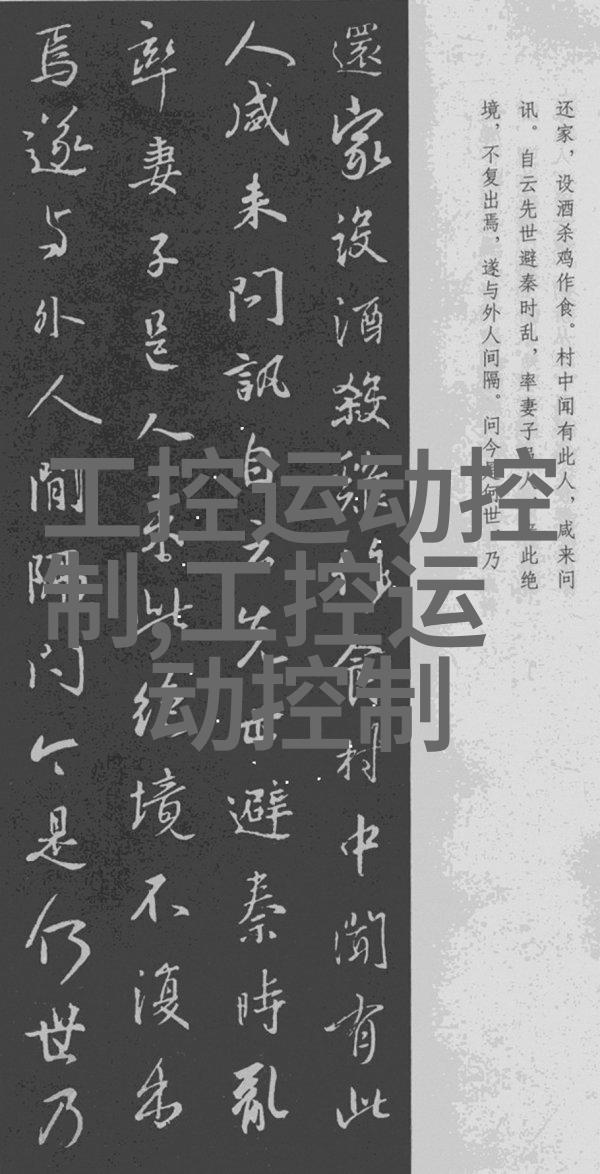 还家，设酒杀鸡作食。村中闻有此人，咸来问
讯。自云先世避秦时乱，率妻子邑人，来此绝
境，不复出焉，遂与外人间隔。问今是何世，乃
還家設酒殺雞作食村中聞有此
人咸来問訊自云先世避秦時亂
率妻子邑人来此絶境不復出
焉遂与外人間隔问今是何世乃
工控运动控
制,工控运
动控制